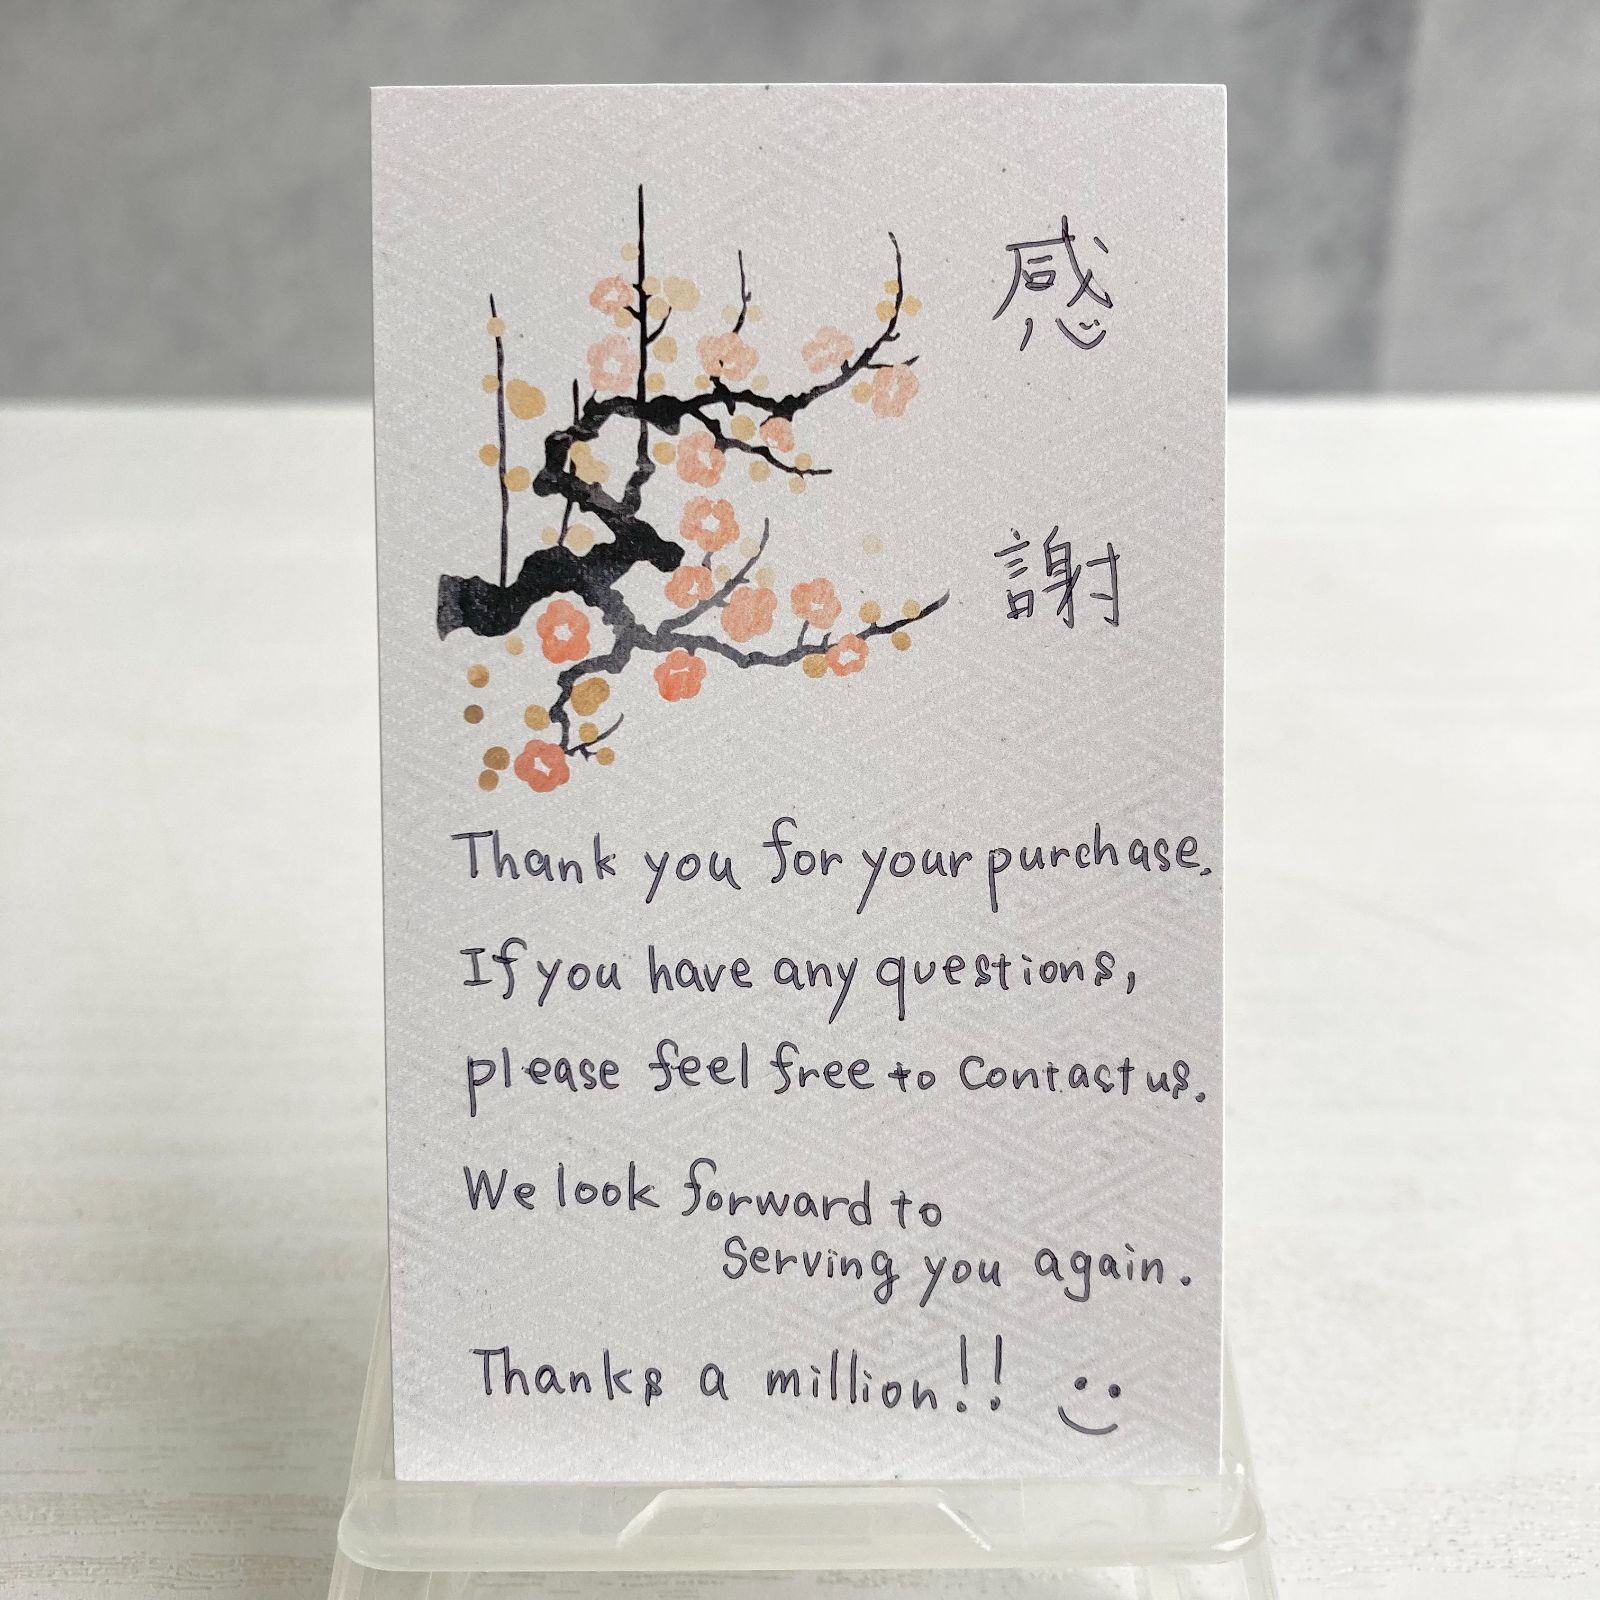 感謝
Thank you for your purchase.
If you have any questions,
please feel free to contact us.
We look forward to
serving you again.
Thanks a million!!